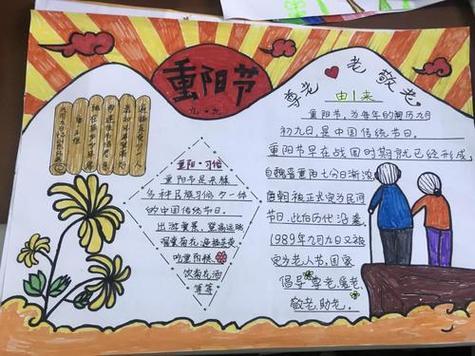 重阳节
九·九
尊老 老敬老
由 来
重阳节,为每年的阴历九月
初九日,是中国传统节日.
重阳节早在战国时期就已经形成
自魏晋重阳 日渐浓
唐朝被正式定为民间
节日,此后历代沿袭
1989年九月九又被
定为老人节,国家
倡导 尊老,爱老
敬老,助老.
重阳·习俗
重阳节是杂糅
多种民族习俗为一体
的中国传统节日.
出游赏景,登高远眺
观赏菊花,遍插茱萸
吃重阳糕
饮菊花酒
等等